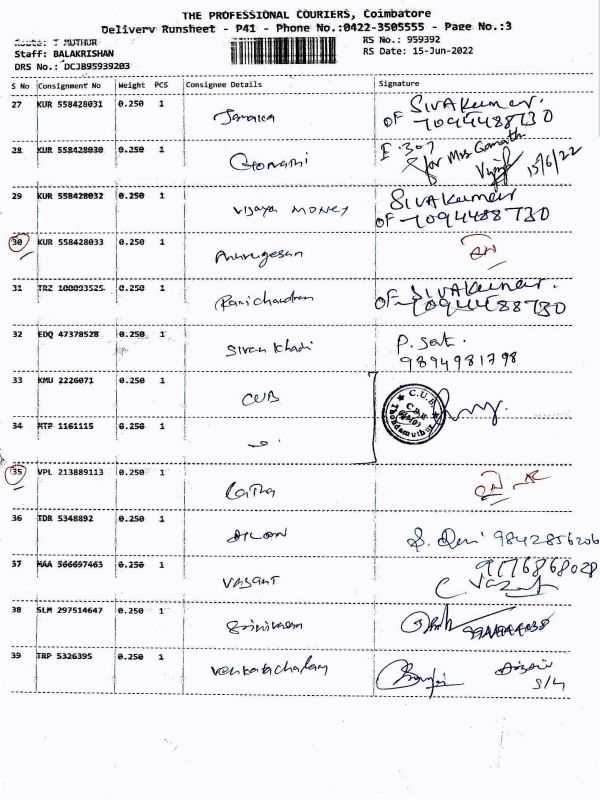 THE PROFESSIONAL COURIERS, Coimbatore
Delivery Runsheet - P41 - Phone No.:0422-3505555 - Page No.:3
Route: T MUTHUR
RS No.: 959392
Staff: BALAKRISHAN
RS Date: 15-Jun-2022
DRS No.: DCJB95939203
S No Consignment No Weight PCS Consignee Details Signature
27 KUR 558428031 0.250 1 Jamaica SIVAKumar.
OF 7094488730
28 KUR 558428030 0.250 1 Gomathi E-307
for Mrs Gomathi
15/6/22
29 KUR 558428032 0.250 1 Vijaya MONEY SIVAKumar
OF 7094488730
30 KUR 558428033 0.250 1 Murugesan
31 TRZ 100093525 0.250 1 Ramchandran OF SIVAKumar.
7094488730
32 EDQ 47378528 0.250 1 Sivan Khadi P. Sat.
9894981798
33 KMU 2226071 0.250 1 CUB C.U.B.
Thondamuthur
34 MTP 1161115 0.250 1
35 VPL 213889113 0.250 1 Latha
36 TDR 5348892 0.250 1 DILON S. Devi 9842856206
37 MAA 566697463 0.250 1 VASANT 9176868028
38 SLM 297514647 0.250 1 Srinivasan
39 TRP 5326395 0.250 1 Venkatachalam